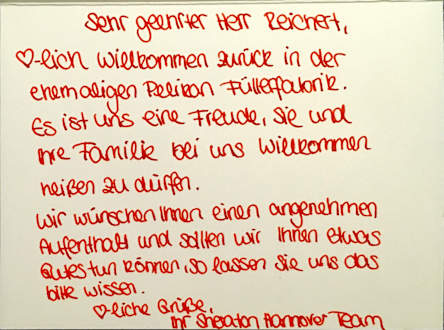 Sehr geehrter Herr Reichert,
♡-lich Willkommen zurück in der
ehemaligen Pelikan Füllerfabrik.
Es ist uns eine Freude, Sie und
Ihre Familie bei uns Willkommen
heißen zu dürfen.
Wir wünschen Ihnen einen angenehmen
Aufenthalt und sollten wir Ihnen etwas
Gutes tun können, so lassen Sie uns das
bitte wissen.
♡-liche Grüße,
Ihr Sheraton Hannover Team